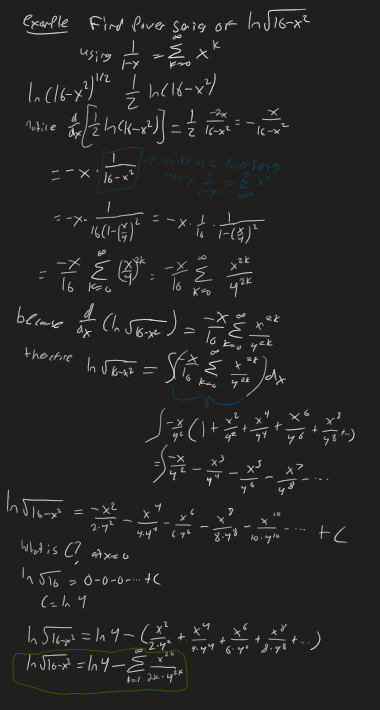 example Find Power Series of ln√16-x²
using 1/(1-x) = ∑_{k=0}^{∞} x^k
ln(16-x²)^{1/2} 1/2 ln(16-x²)
Notice d/dx[1/2 ln(16-x²)] = 1/2 · -2x/(16-x²) = -x/(16-x²)
= -x · 1/(16-x²) → write as a Power series
using 1/(1-x) = ∑_{k=0}^{∞} x^k
= -x · 1/(16(1-(x/4)²)) = -x · 1/16 · 1/(1-(x/4)²)
= -x/16 ∑_{k=0}^{∞} (x/4)^{2k} = -x/16 ∑_{k=0}^{∞} x^{2k}/4^{2k}
because d/dx (ln√16-x²) = -x/16 ∑_{k=0}^{∞} x^{2k}/4^{2k}
therefore ln√16-x² = ∫(-x/16 ∑_{k=0}^{∞} x^{2k}/4^{2k}) dx
∫ -x/4² (1 + x²/4² + x⁴/4⁴ + x⁶/4⁶ + x⁸/4⁸ + ...)
= ∫ -x/4² - x³/4⁴ - x⁵/4⁶ - x⁷/4⁸ - ...
ln√16-x² = -x²/(2·4²) - x⁴/(4·4⁴) - x⁶/(6·4⁶) - x⁸/(8·4⁸) - x¹⁰/(10·4¹⁰) ... + C
What is C? at x=0
ln√16 = 0-0-0-... + C
C = ln 4
ln√16-x² = ln 4 - (x²/(2·4²) + x⁴/(4·4⁴) + x⁶/(6·4⁶) + x⁸/(8·4⁸) + ...)
ln√16-x² = ln 4 - ∑_{k=1}^{∞} x^{2k}/(2k·4^{2k})